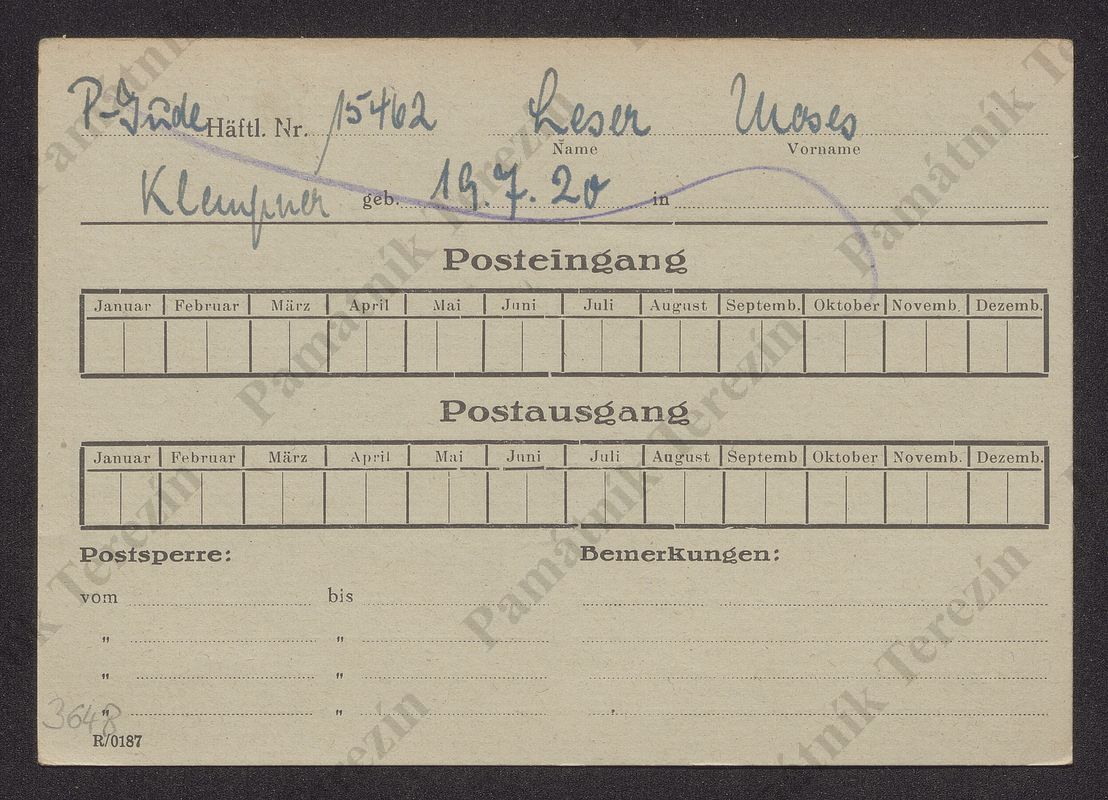 P-Jude Häftl. Nr. 15462 Leser Moses
Name Vorname
Klempner geb. 19.7.20 in
Posteingang
Januar Februar März April Mai Juni Juli August Septemb. Oktober Novemb. Dezemb.
Postausgang
Januar Februar März April Mai Juni Juli August Septemb Oktober Novemb. Dezemb.
Postsperre: Bemerkungen:
vom bis
" "
" "
" "
3648
R/0187
Památník Terezín